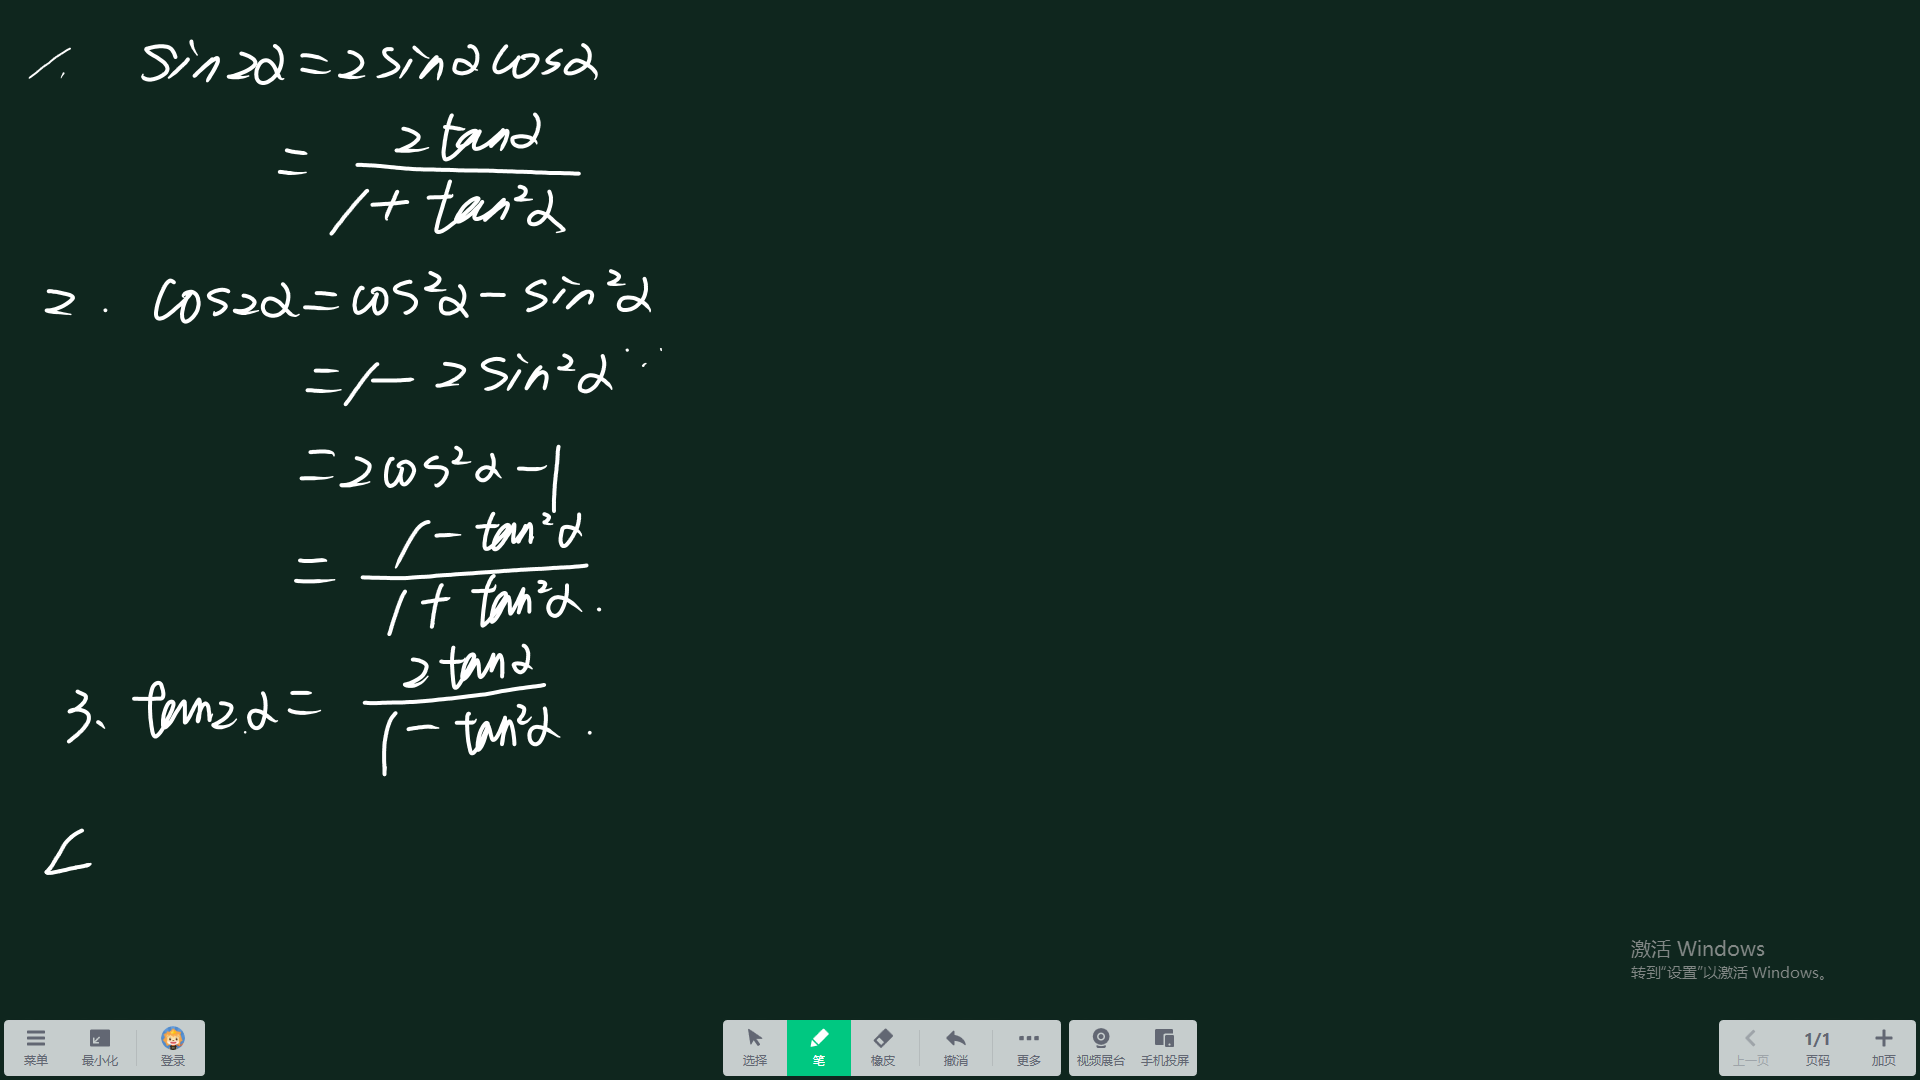 1. sin2α=2sinαcosα
= 2tanα / 1+tan²α
2. cos2α=cos²α-sin²α
=1-2sin²α
=2cos²α-1
= 1-tan²α / 1+tan²α.
3、tan2α= 2tanα / 1-tan²α.
激活 Windows
转到“设置”以激活 Windows。
菜单 最小化 登录 选择 笔 橡皮 撤消 更多 视频展台 手机投屏 上一页 1/1 页码 加页